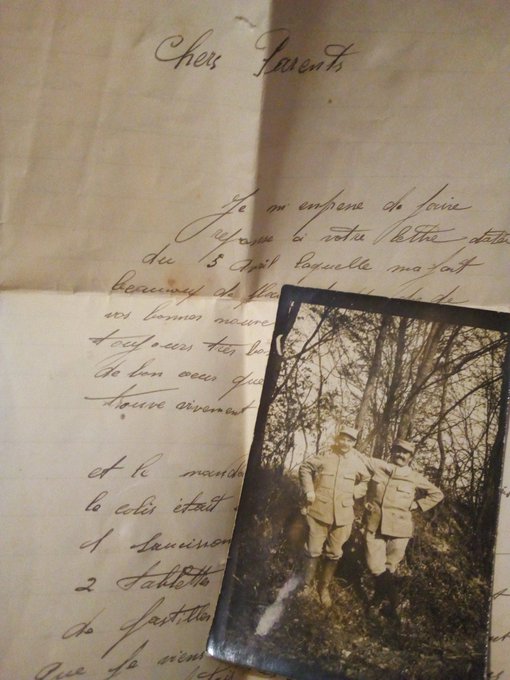 Chers Parents
Je m'enprese de faire
reponse a votre lettre datee
du 5 Avril laquelle ma fait
beaucoup de
vos bonnes nouve
toujours tres bo
de bon coeur que
trouve vivement
et le manda
le colis était
1 saucisson
2 tablettes
de pastilles
que je viens